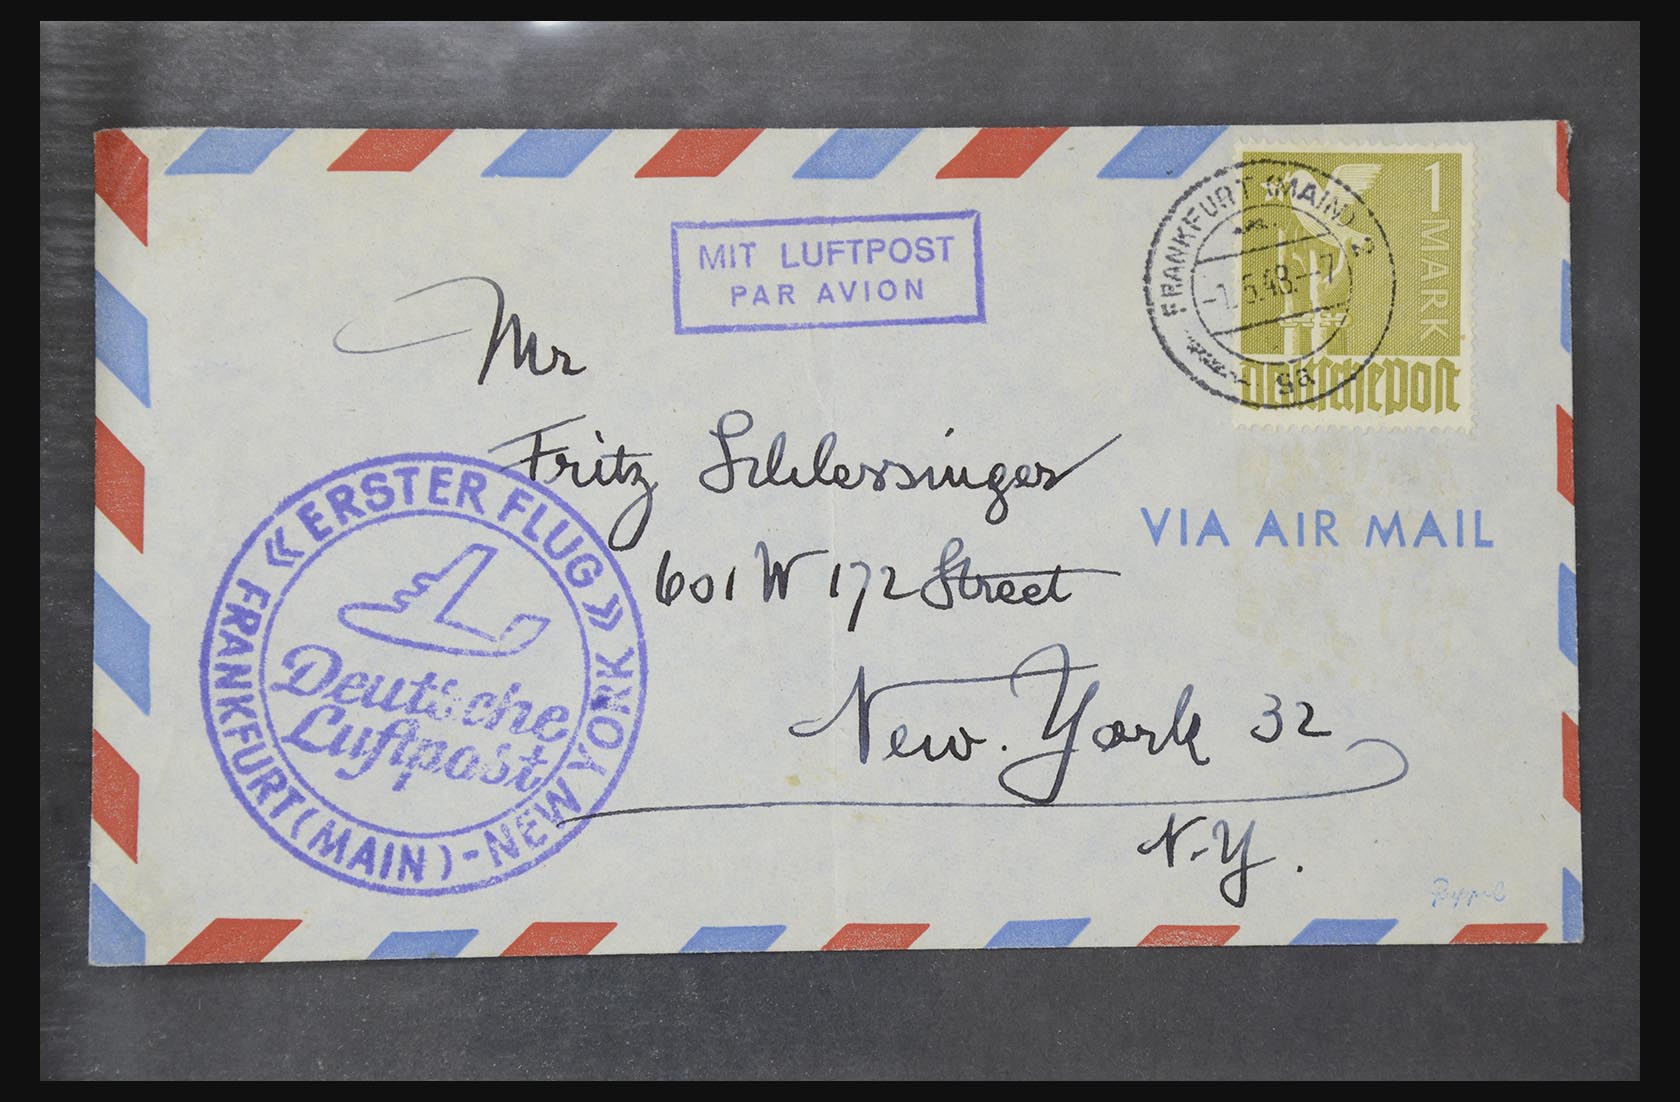 MIT LUFTPOST
PAR AVION
1 MARK
Deutsche Post
FRANKFURT (MAIN) 2
-1.5.48.--7
9a
Mr
Fritz Schlessinger
601 W 172 Street
New. York 32
N.Y.
VIA AIR MAIL
« ERSTER FLUG »
FRANKFURT (MAIN) - NEW YORK
Deutsche
Luftpost